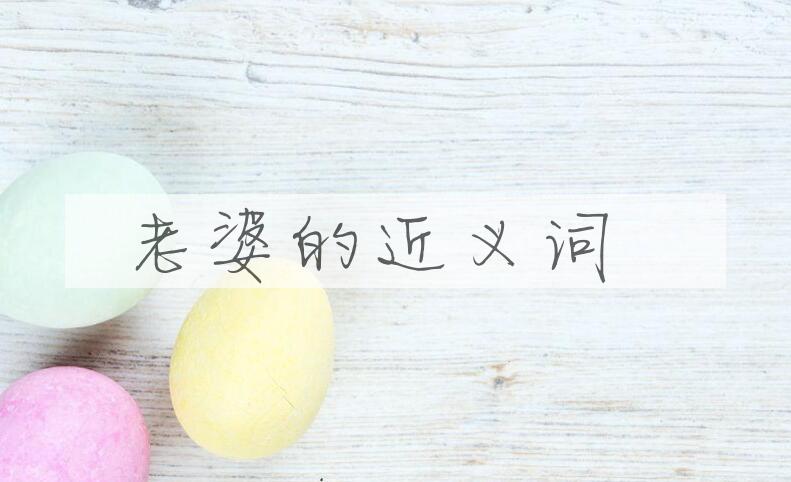 老婆的近义词